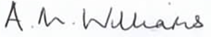 A. M. Williams